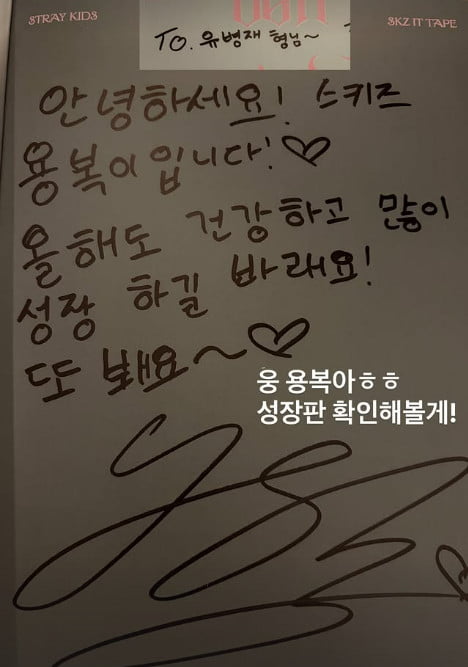 STRAY KIDS
SKZ IT TAPE
TO. 유병재 형님~
안녕하세요! 스키즈
용복이입니다!♡
올해도 건강하고 많이
성장 하길 바래요!
또 봬요~♡
웅 용복아ㅎㅎ
성장판 확인해볼게!